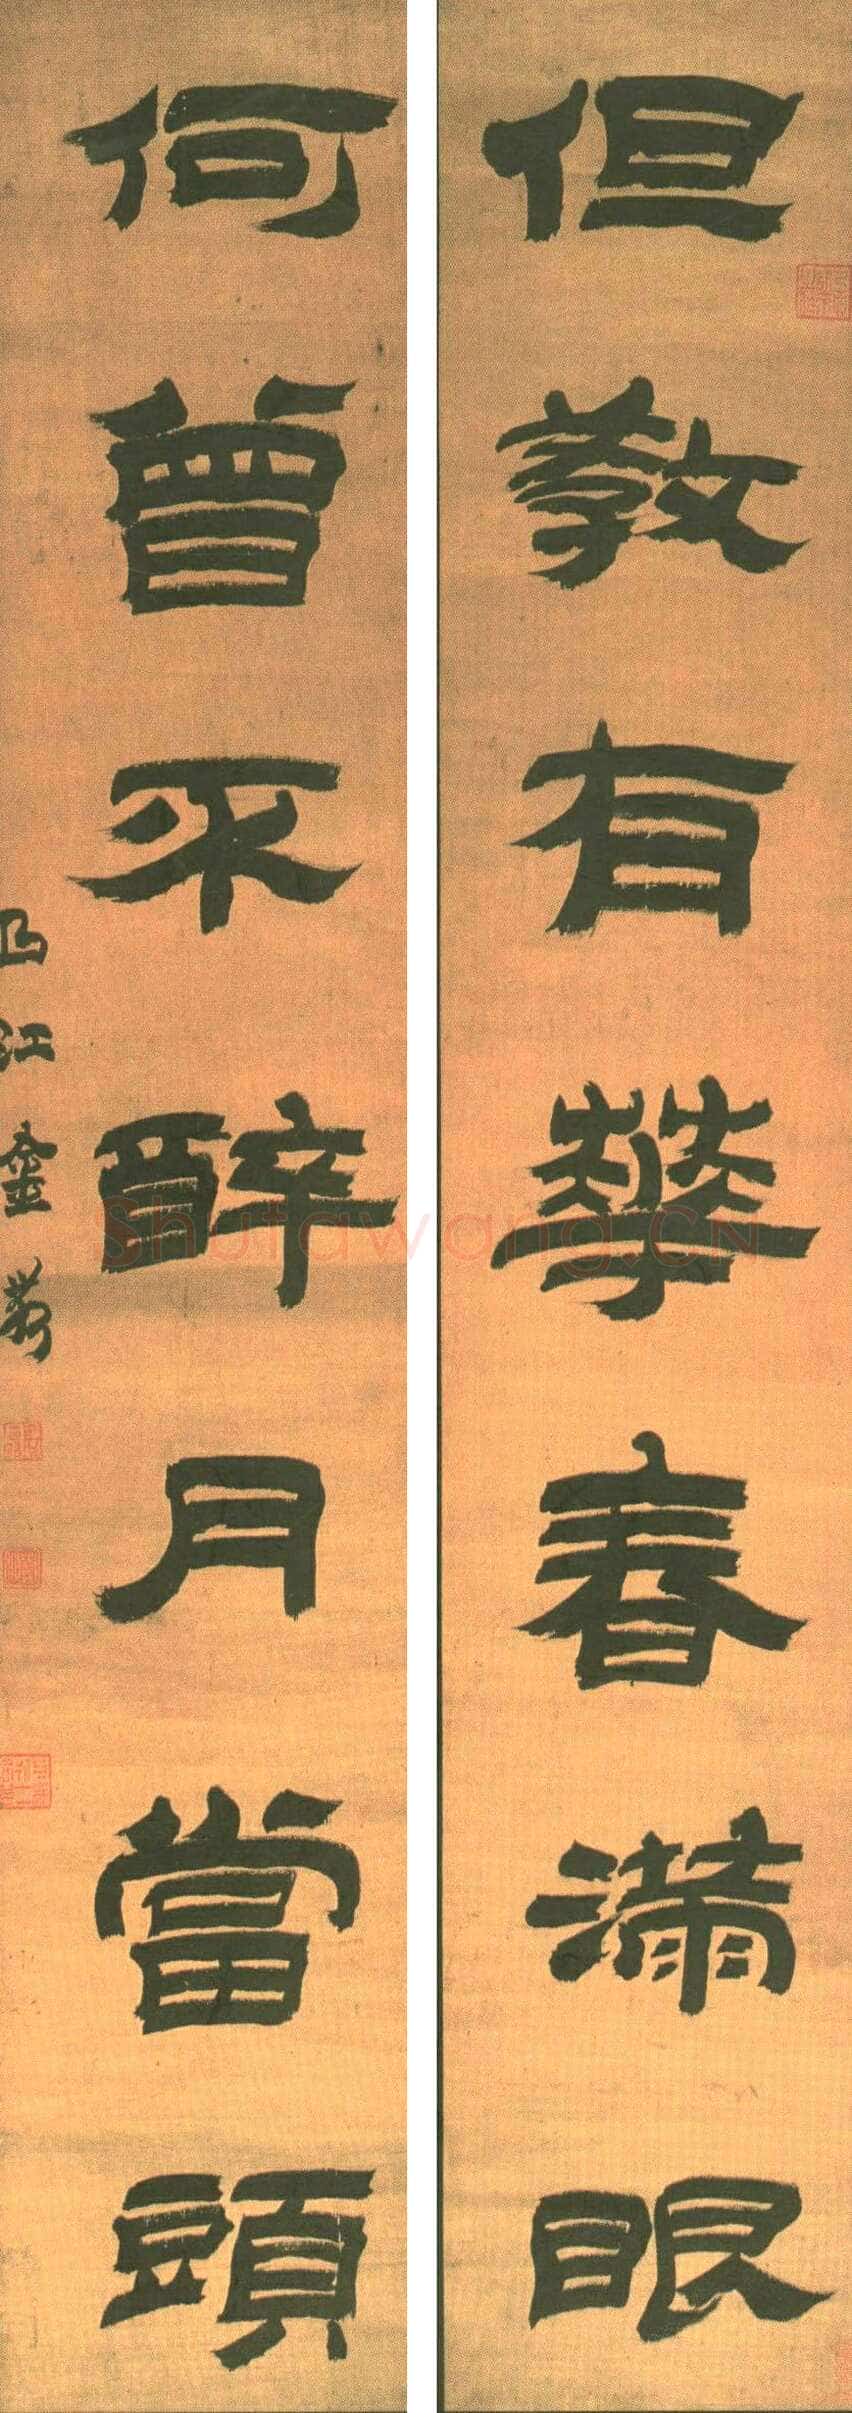 但教有華春滿眼
何曾不醉月當頭
曲江金農
Shufawang.CN